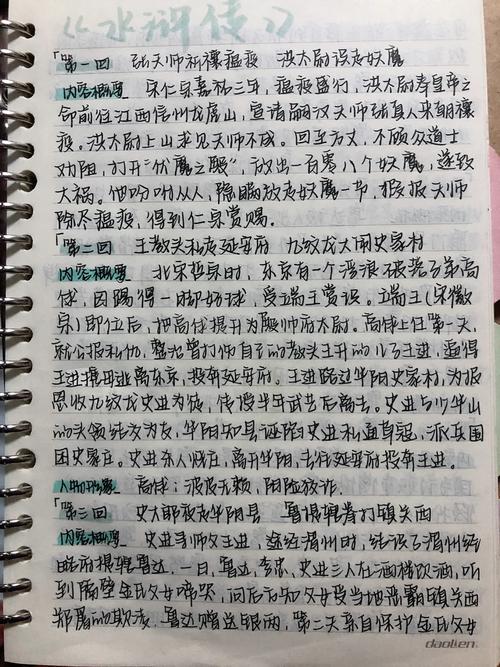 《水浒传》
「第一回 张天师祈禳瘟疫 洪太尉误走妖魔
内容概要 宋仁宗嘉祐三年，瘟疫盛行，洪太尉奉皇帝之
命前往江西信州龙虎山，宣请嗣汉天师张真人来朝禳
疫。洪太尉上山求见天师不成。回至方丈，不顾众道士
劝阻，打开"伏魔之殿"，放出一百零八个妖魔，遂致
大祸。他吩咐从人，隐瞒放走妖魔一节，假报天师
除尽瘟疫，得到仁宗赏赐。
「第二回 王教头私走延安府 九纹龙大闹史家村
内容概要 北宋哲宗时，东京有一个浮浪破落子弟高
俅，因踢得一脚好球，受端王赏识。端王(宋徽
宗)即位后，把高俅提升为殿帅府太尉。高俅上任第一天，
就公报私仇，整治曾打伤自己的教头王升的儿子王进，逼得
王进携母逃离东京，投奔延安府。王进路过华阴史家村，为报
恩收九纹龙史进为徒，传授毕武艺后离去。史进与少华山
的头领结交为友，华阴知县诬陷史进私通草寇，派兵围
困史家庄。史进杀人烧庄，离开华阴，去往延安府投奔王进。
人物形象 高俅：泼皮无赖，阴险狡诈。
「第三回 史大郎夜走华阴县 鲁提辖拳打镇关西
内容概要 史进寻师父王进，途经渭州时，结识了渭州经
略府提辖鲁达。一日，鲁达，李忠，史进三人在酒楼饮酒，听
到隔壁金氏父女啼哭，问后方知父女受当地恶霸镇关西
郑屠的欺凌。鲁达赠送银两，第二天亲自保护金氏父女
daolien.